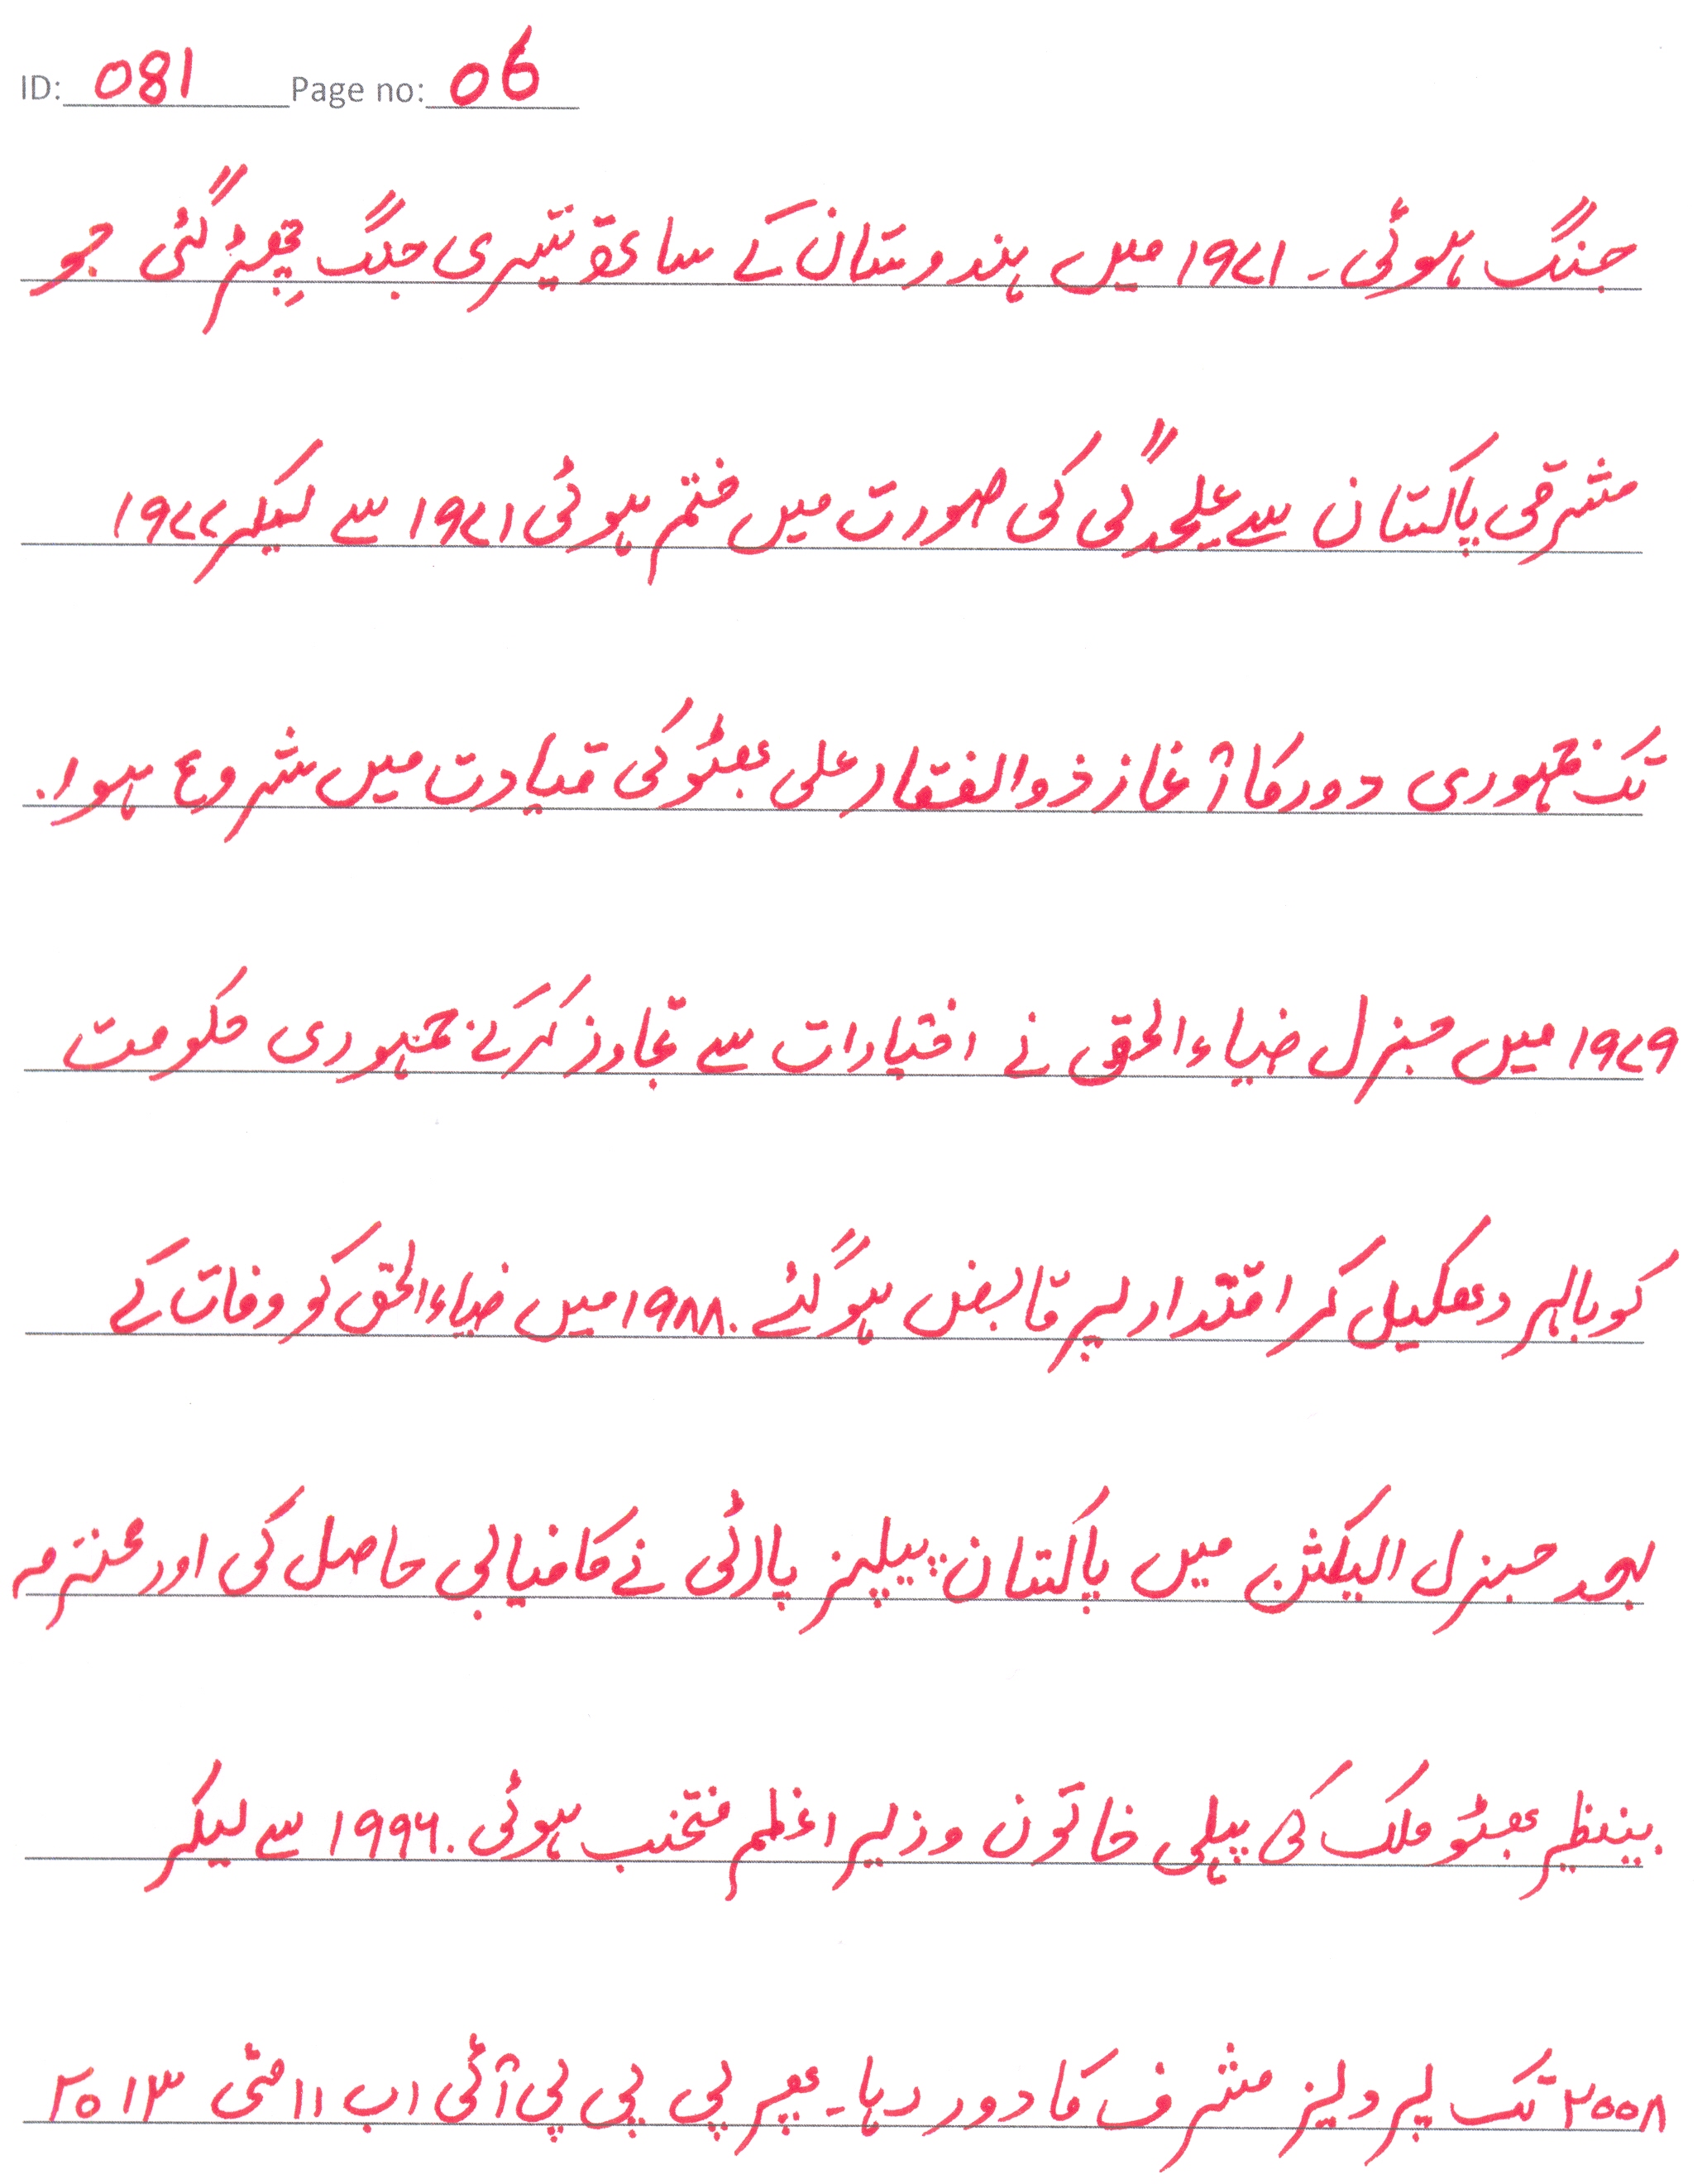 ID: 081 Page no: 06
جنگ ہوئی۔ ۱۹۷۱ میں ہندوستان کے ساتھ تیسری جنگ چھِڑ گئی جو
مشرقی پاکستان سے علیحدگی کی صورت میں ختم ہوئی ۱۹۷۱ سے لیکر ۱۹۷۷
تک جمہوری دور کا آغاز ذوالفقار علی بھٹو کی قیادت میں شروع ہوا.
۱۹۷۹ میں جنرل ضیاءالحق نے اختیارات سے تجاوز کرکے جمہوری حکومت
کو باہر دھکیل کر اقتدار پر قابض ہوگئے. ۱۹۸۸ میں ضیاءالحق کو وفات کے
بعد جنرل الیکشن میں پاکستان پیپلز پارٹی نے کامیابی حاصل کی اور محترمہ
بینظیر بھٹو ملک کی پہلی خاتون وزیر اعظم منتخب ہوئی. ۱۹۹۶ سے لیکر
۲۰۰۸ تک پرویز مشرف کا دور رہا۔ پھر پی پی پی آئی اب ۱۱ مئی ۲۰۱۳